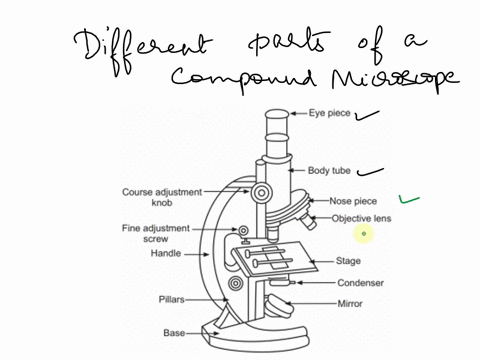 Different parts of a
Compound Microscope
Eye piece
Body tube
Course adjustment
knob
Nose piece
Objective lens
Fine adjustment
screw
Handle
Stage
Condenser
Pillars
Mirror
Base